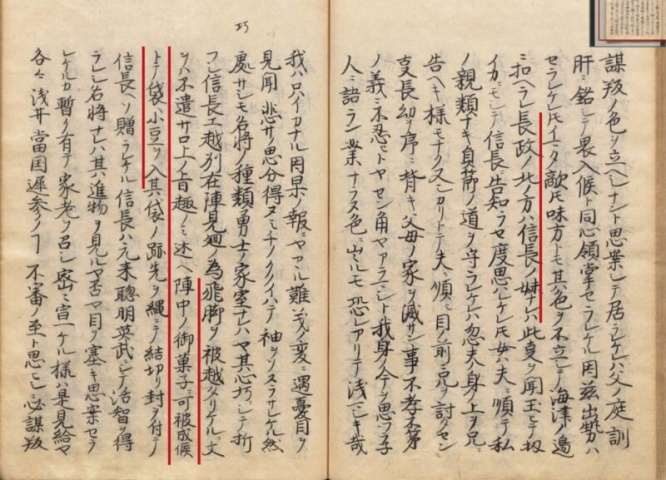 謀叛ノ色ヲ立ヘシナント思案シテ居ラレケレハ父ノ庭訓
肝ニ鑑シテ畏入候ト同心領掌セラレケル因茲出勢ハ
セラレケレ𪜈イマタ敵𪜈味方𪜈其色ヲ不立シテ海津ノ邊ニ
扣ヘラレ長政ノ北ノ方ハ信長ノ妹ナレハ此支ヲ聞玉ヒテ扨
イカヽシテ信長ニ告知ラセ度思ハレケレ𪜈女ハ夫ニ順テ私
ノ親類ナキ貞節ノ道ヲ守ラレケレハ忽夫ノ身ノ上ヲ兄ニ
告ヘキ様モナク又シカリトテ夫ニ順ヒ目ノ前ニ兄ヲ討タセン
支長幼ノ序ニ背キ父母ノ家ヲ滅サン事不孝不第
ノ義ニ不忍トヤセン角ヤアラマシト我身ノ今ノ思ヲツ子
人ニ語ラン業ナラス色ニ出ルモ恐レアリテ浅マシキ哉
我ハ只イカナル因果ノ報ニヤカヽル難義ノ変ニ遇憂目ヲ
見聞悲サノ思分得ヌミチノクノイハテ袖ヲソヌラサレケル然
處サレモ名將ノ種類勇士ノ家室ナレハヤ其心巧ニシテ折
フシ信長エ越列在陣見廻ノ為飛脚ヲ被越タリケルニ文
ヲハ不遣サ口上ノ旨趣ニ述ヘ陣中ノ御菓子ニ可被成候
トテ袋ニ小豆ヲ入其袋ノ跡先ヲ縄ニテ結切リ封ヲ付テ
信長ヘソ贈ラレケル信長ハ元来聡明英武ニシテ活智ヲ得
ラレシ名將ナレハ其進物ヲ見ルヤ否ヤ目ヲ塞キ思案セラ
レケルカ暫ク有テ家老ヲ召シ密ニ宣ヒケル様ハ是見給ヘヤ
各々浅井當国遅参ノヿ不審ノ至ト思ヒシニ必謀叛